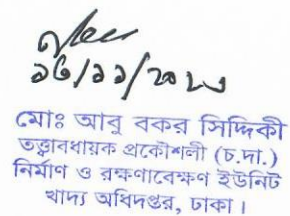 ১৬/১১/২০২৩
মোঃ আবু বকর সিদ্দিকী
তত্ত্বাবধায়ক প্রকৌশলী (চ.দা.)
নির্মাণ ও রক্ষণাবেক্ষণ ইউনিট
খাদ্য অধিদপ্তর, ঢাকা।